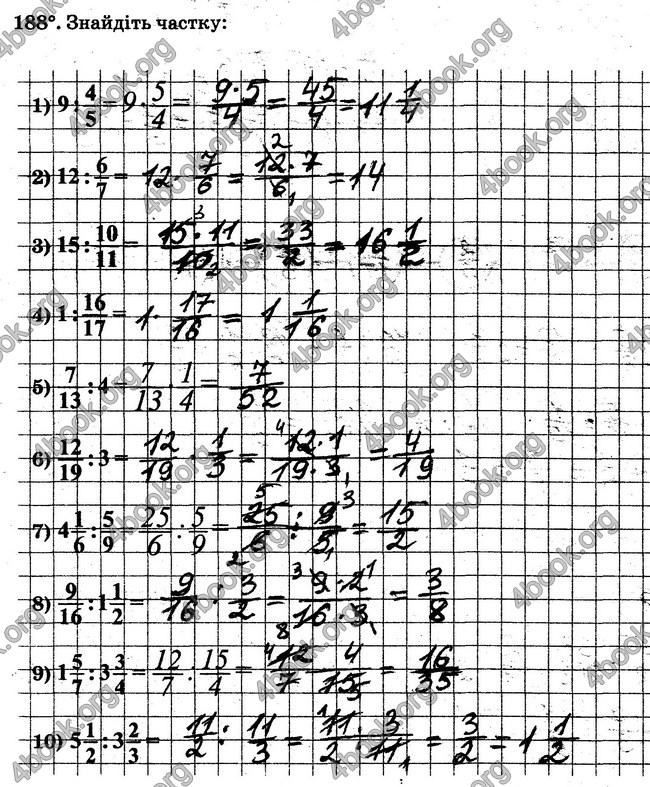 188°. Знайдіть частку:
1) 9 : 4/5 = 9 · 5/4 = 9·5/4 = 45/4 = 11 1/4
2) 12 : 6/7 = 12 · 7/6 = 12·7/6 = 14
3) 15 : 10/11 = 15·11/10 = 33/2 = 16 1/2
4) 1 : 16/17 = 1 · 17/16 = 1 1/16
5) 7/13 : 4 = 7/13 · 1/4 = 7/52
6) 12/19 : 3 = 12/19 · 1/3 = 12·1/19·3 = 4/19
7) 4 1/6 : 5/9 = 25/6 : 5/9 = 25/6 : 9/5 = 15/2
8) 9/16 : 1 1/2 = 9/16 : 3/2 = 9·2/16·3 = 3/8
9) 1 5/7 : 3 3/4 = 12/7 : 15/4 = 12/7 · 4/15 = 16/35
10) 5 1/2 : 3 2/3 = 11/2 : 11/3 = 11·3/2·11 = 3/2 = 1 1/2
4book.org